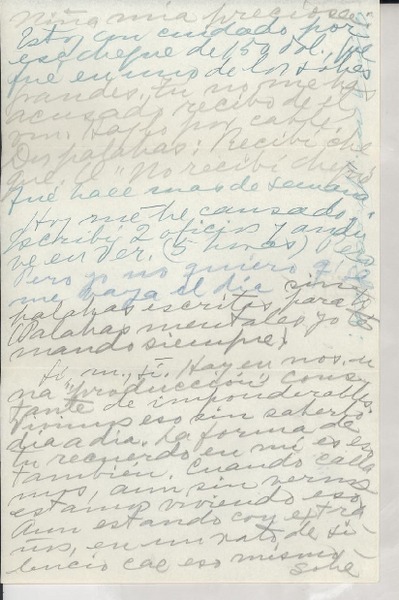 Niña mía preciosa:
Estoy con cuidado por
ese cheque de 150 dol. que
fue en uno de los sobres
grandes. Tú no me has
acusado recibo de él
por cable.
Dos palabras: Recibí che
que, o "No recibí cheque"
qué hace más de semana.
Hoy me he cansado,
escribí 2 oficios y andu
ve en Ver. (5 horas) Pero
Pero yo no quiero q. se
me vaya el día sin
palabras escritas para ti.
(Palabras mentales yo te
mando siempre.)
Sí, m., sí. Hay en nos. u
na "producción" cons
tante de imponderables.
Vivimos eso sin saberlo
día a día. La forma de
tu recuerdo en mí es eso
también. Cuando calla
mos, aun sin vernos
estamos viviendo eso.
Aun estando con extra
ños, en un rato de si
lencio cae eso mismo
sobre